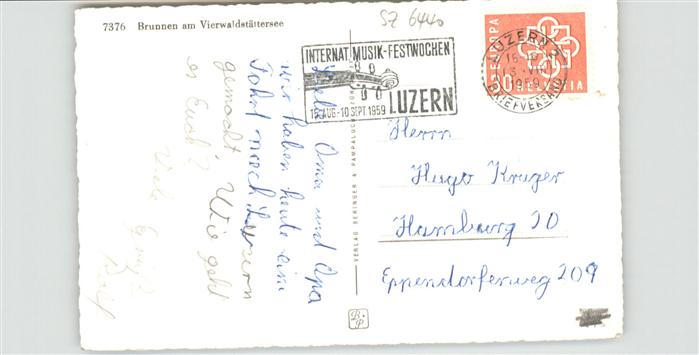 7376 Brunnen am Vierwaldstättersee
SZ 6440
INTERNAT. MUSIK-FESTWOCHEN
15. AUG.-10. SEPT. 1959
LUZERN
LUZERN
1959
BRIEFVERSAND
EUROPA
HELVETIA
Liebe Oma und Opa
wir haben heute eine
Fahrt nach Luzern
gemacht. Wie geht
es Euch?
Viele Grüße
Ralf
VERLAG BERINGER & PAMPALUCHI
Herrn
Hugo Krüger
Hamburg 20
Eppendorferweg 209
B.P